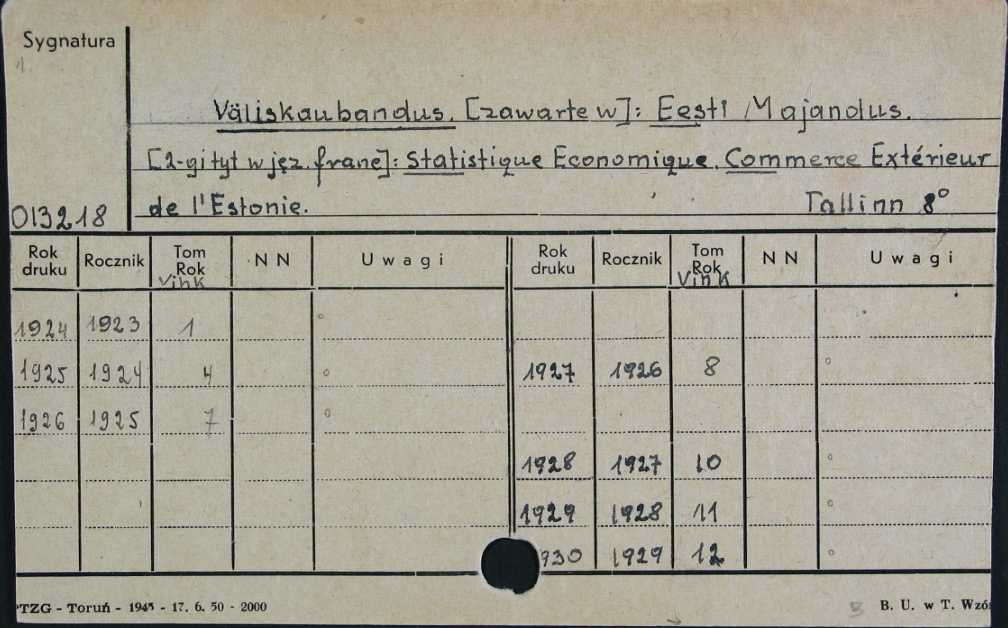 Sygnatura
1.
Väliskaubandus. [zawarte w]: Eesti Majandus.
[2-gi tyt w jęz. franc]: Statistique Economique. Commerce Extérieur
de l'Estonie. Tallinn 8°
013218
Rok druku Rocznik Tom Rok Vihk N N Uwagi Rok druku Rocznik Tom Rok Vihk N N Uwagi
1924 1923 1 °
1925 1924 4 ° 1927 1926 8 °
1926 1925 7 °
1928 1927 10 °
1929 1928 11 °
930 1929 12 °
PTZG - Toruń - 1945 - 17. 6. 50 - 2000 B. U. w T. Wzór